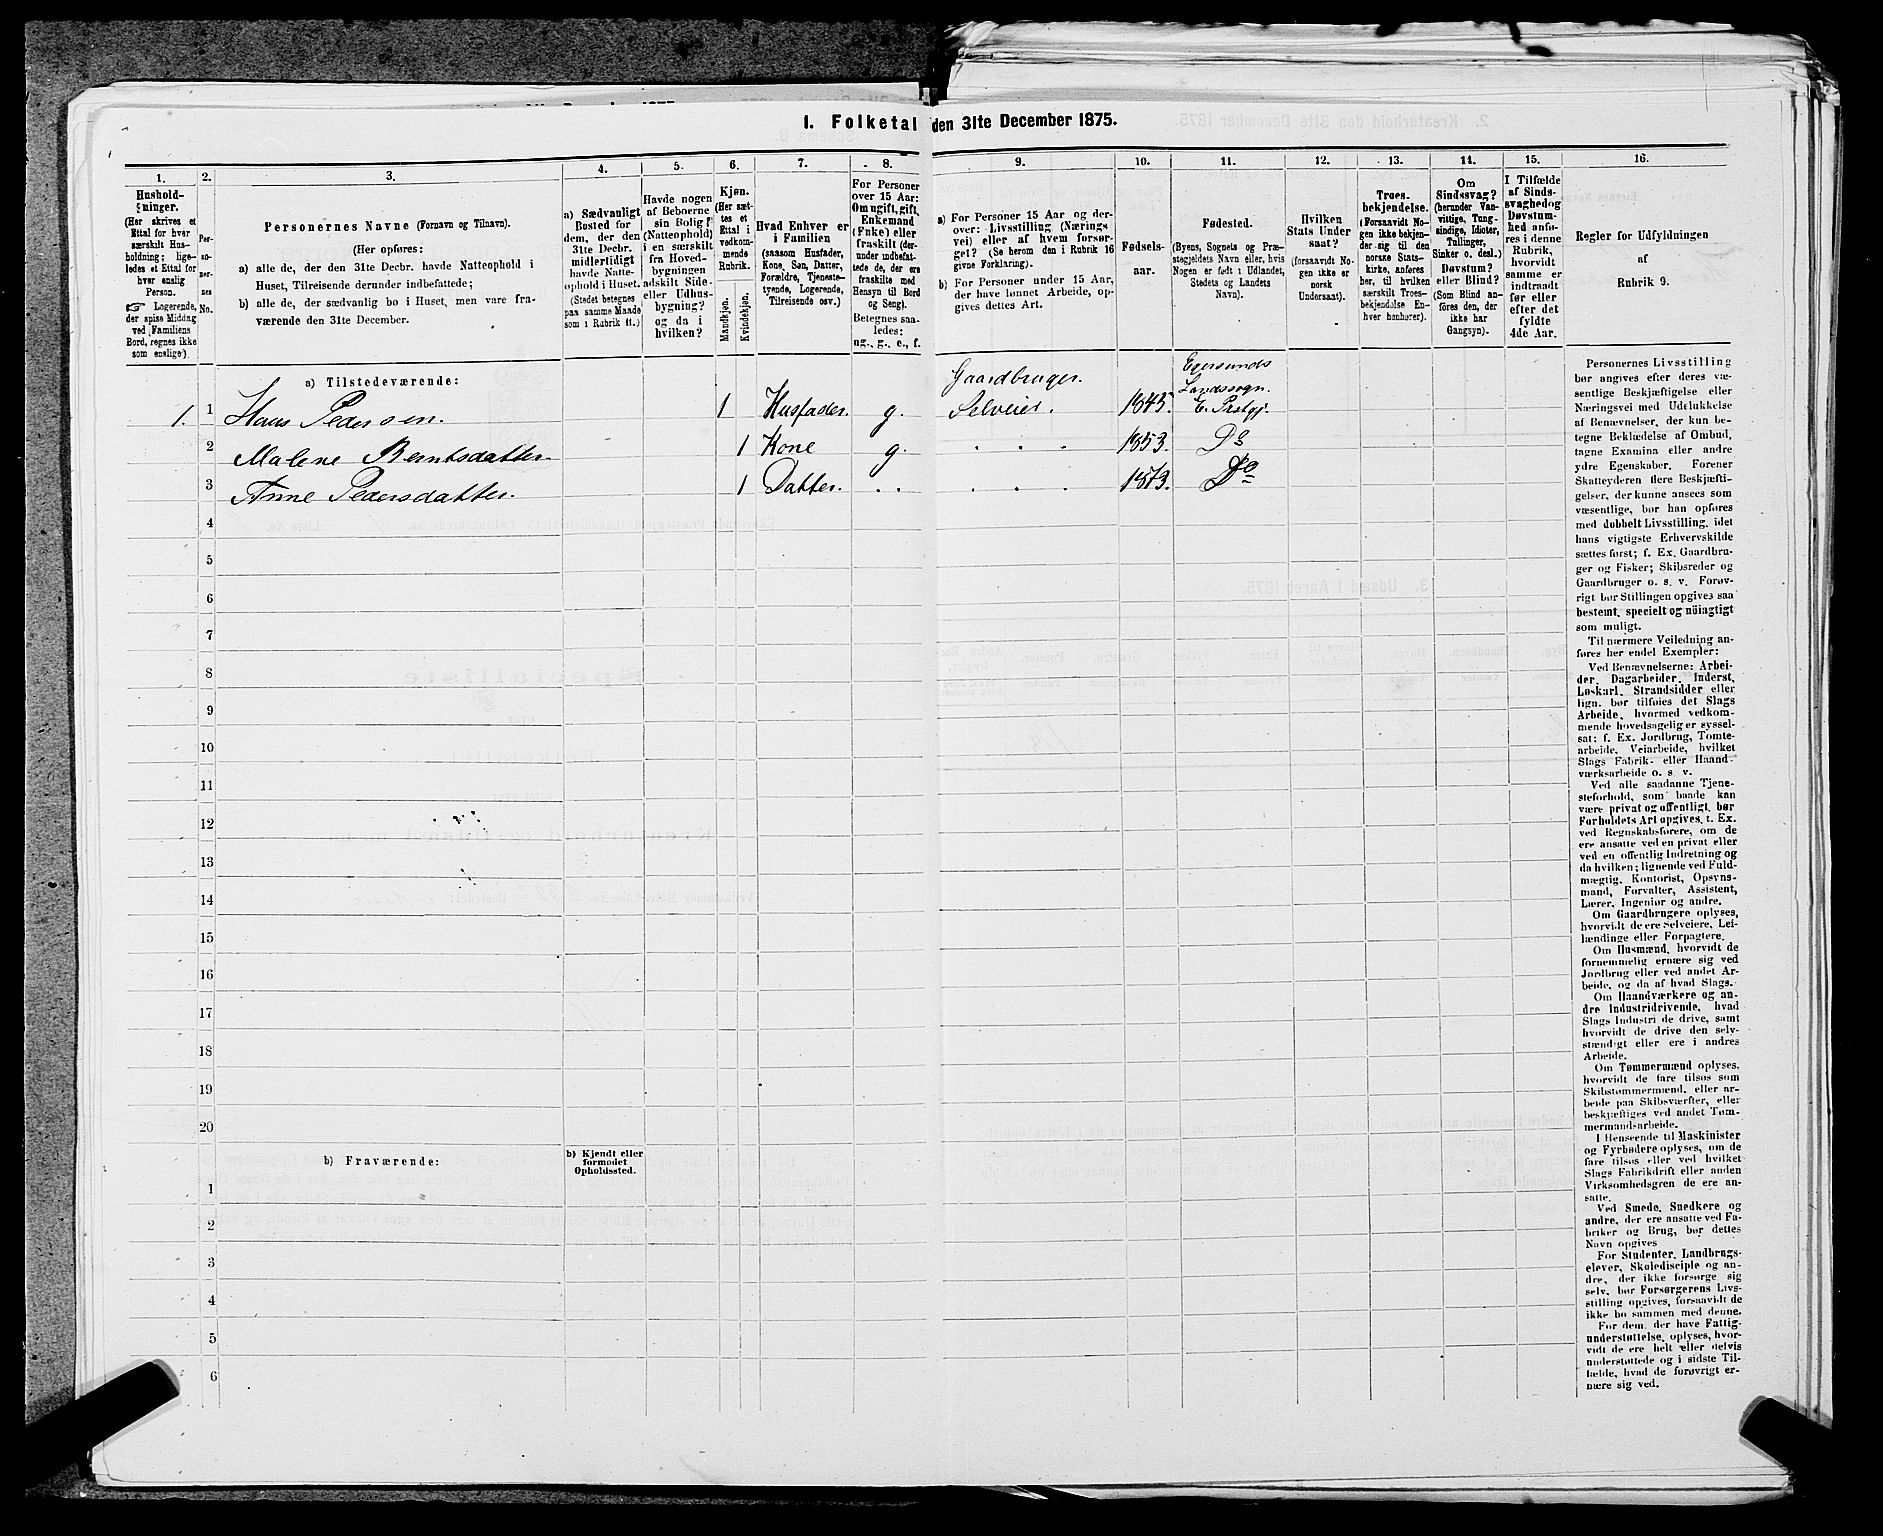 1. Folketal den 31te December 1875.
1.
Hushold-
ninger.
(Her skrives et
Ettal for hver
særskilt Hus-
holdning; lige-
ledes et Ettal for
hver enslig
Person.
☞ Logerende,
der spise Middag
ved Familiens
Bord, regnes ikke
som enslige).
2.
Per-
so-
ner-
nes
No.
3.
Personernes Navne (Fornavn og Tilnavn).
(Her opføres:
a) alle de, der den 31te Decbr. havde Natteophold i
Huset, Tilreisende derunder indbefattede;
b) alle de, der sædvanlig bo i Huset, men vare fra-
værende den 31te December.
4.
a) Sædvanligt
Bosted for
dem, der den
31te Decbr.
midlertidigt
havde Natte-
ophold i Huset.
(Stedet betegnes
paa samme Maade
som i Rubrik 11.)
5.
Havde nogen
af Beboerne
sin Bolig
(Natteophold)
i en særskilt
fra Hoved-
bygningen
adskilt Side-
eller Udhus-
bygning?
og da i
hvilken?
6.
Kjøn.
(Her sæt-
tes et
Ettal i
vedkom-
mende
Rubrik.
Mandkjøn.
Kvindekjøn.
7.
Hvad Enhver er
i Familien
(saasom Husfader,
Kone, Søn, Datter,
Forældre, Tjeneste-
tyende, Logerende,
Tilreisende osv.)
8.
For Personer
over 15 Aar:
Om ugift, gift,
Enkemand
(Enke) eller
fraskilt (der-
under indbefat-
tede de, der ere
fraskilte med
Hensyn til Bord
og Seng).
Betegnes saa-
ledes:
ug., g., e., f.
9.
a) For Personer 15 Aar og der-
over: Livsstilling (Nærings
vei) eller af hvem forsør-
get? (Se herom den i Rubrik 16
givne Forklaring).
b) For Personer under 15 Aar,
der have lønnet Arbeide, op-
gives dettes Art.
10.
Fødsels-
aar.
11.
Fødested.
(Byens, Sognets og Præ-
stegjeldets Navn eller, hvis
Nogen er født i Udlandet,
Stedets og Landets
Navn).
12.
Hvilken
Stats Under
saat?
(forsaavidt No-
gen ikke er
norsk
Undersaat).
13.
Troes-
bekjendelse.
(Forsaavidt No-
gen ikke bekjen-
der sig til den
norske Stats-
kirke, anføres
her, til hvilken
særskilt Troes-
bekjendelse En-
hver henhører).
14.
Om
Sindssvag?
(herunder Van-
vittige, Tung-
sindige, Idioter,
Tullinger,
Sinker o. desl.)
Døvstum?
eller Blind?
(Som Blind an-
føres den, der
ikke har
Gangsyn).
15.
I Tilfælde
af Sinds-
svaghed og
Døvstum-
hed anfø-
res i denne
Rubrik,
hvorvidt
samme er
indtraadt
før eller
efter det
fyldte
4de Aar.
16.
Regler for Udfyldningen
af
Rubrik 9.
a) Tilstedeværende:
1. 1 Hans Pedersen. 1 Husfader. g. Gaardbruger. Selveier. 1845. Egersunds Landssogn. E. Prstgj.
2 Malene Berntsdatter 1 Kone g. . . . 1853. Do
3 Anne Pedersdatter. 1 Datter. . . . . . 1873. Do
4
5
6
7
8
9
10
11
12
13
14
15
16
17
18
19
20
b) Fraværende:
b) Kjendt eller
formodet
Opholdssted.
1
2
3
4
5
6
Personernes Livsstilling
bør angives efter deres væ-
sentlige Beskjæftigelse eller
Næringsvei med Udelukkelse
af Benævnelser, der kun be-
tegne Beklædelse af Ombud,
tagne Examina eller andre
ydre Egenskaber. Forener
Skatteyderen flere Beskjæfti-
gelser, der kunne ansees som
væsentlige, bør han opføres
med dobbelt Livsstilling, idet
hans vigtigste Erhvervskilde
sættes først; f. Ex. Gaardbru-
ger og Fisker; Skibsreder og
Gaardbruger o. s. v. Forøv-
rigt bør Stillingen opgives saa
bestemt, specielt og nöiagtigt
som muligt.
Til nærmere Veiledning an-
føres her endel Exempler:
Ved Benævnelserne: Arbei-
der, Dagarbeider, Inderst,
Løskarl, Strandsidder eller
lign. bør tilføies det Slags
Arbeide, hvormed vedkom-
mende hovedsagelig er syssel-
sat; f. Ex. Jordbrug, Tomte-
arbeide, Veiarbeide, hvilket
Slags Fabrik- eller Haand-
værksarbeide o. s. v.
Ved alle saadanne Tjene-
steforhold, som baade kan
være privat og offentligt, bør
Forholdets Art opgives, t. Ex.
ved Regnskabsførere, om de
ere ansatte ved en privat eller
ved en offentlig Indretning og
da hvilken; lignende ved Fuld-
mægtig, Kontorist, Opsyns-
mand, Forvalter, Assistent,
Lærer, Ingeniør og andre.
Om Gaardbrugere oplyses,
hvorvidt de ere Selveiere, Lei-
lændinge eller Forpagtere.
Om Husmænd, hvorvidt de
fornemmelig ernære sig ved
Jordbrug eller ved andet Ar-
beide, og da af hvad Slags.
Om Haandværkere og an-
dre Industridrivende, hvad
Slags Industri de drive, samt
hvorvidt de drive den selv-
stændigt eller ere i andres
Arbeide.
Om Tømmermænd oplyses,
hvorvidt de fare tilsøs som
Skibstømmermænd, eller ar-
beide paa Skibsværfter, eller
beskjæftiges ved andet Tøm-
mermandsarbeide.
I Henseende til Maskinister
og Fyrbødere oplyses, om de
fare tilsøs eller ved hvilket
Slags Fabrikdrift eller anden
Virksomhedsgren de ere an-
satte.
Ved Smede, Snedkere og
andre, der ere ansatte ved Fa-
briker og Brug, bør dettes
Navn opgives
For Studenter, Landbrugs-
elever, Skoledisciple og an-
dre, der ikke forsørge sig
selv, bør Forsørgerens Livs-
stilling opgives, forsaavidt de
ikke bo sammen med denne.
For dem, der have Fattig-
understøttelse, oplyses, hvor-
vidt de ere helt eller delvis
understøttede og i sidste Til-
fælde, hvad de forøvrigt er-
nære sig ved.